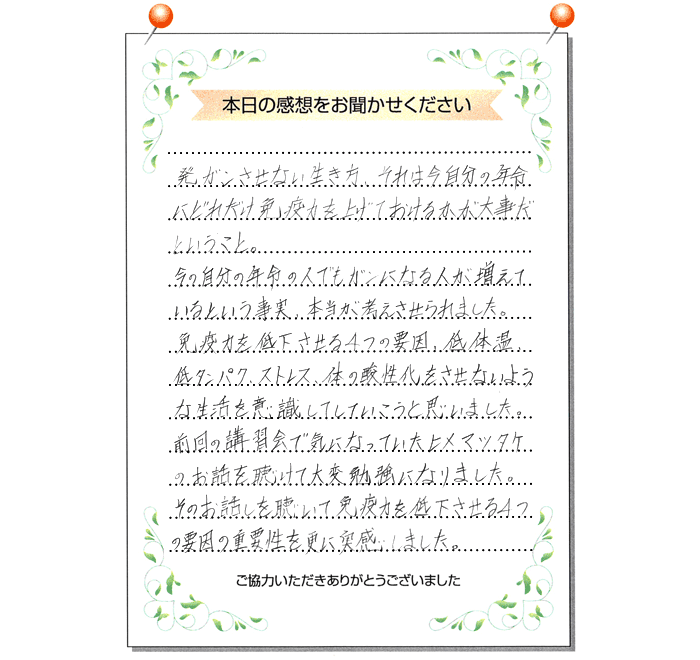 本日の感想をお聞かせください
発ガンさせない生き方、それは今自分の年令
にどれだけ免疫力を上げておけるかが大事だ
ということ。
今の自分の年令の人でもガンになる人が増えて
いるという事実、本当が考えさせられました。
免疫力を低下させる4つの要因、低体温、
低タンパク、ストレス、体の酸性化をさせないよう
な生活を意識してしていこうと思いました。
前回の講習会で気になっていたヒメマツタケ
のお話を聴けて大変勉強になりました。
そのお話しを聴いて免疫力を低下させる4つ
の要因の重要性を更に実感しました。
ご協力いただきありがとうございました